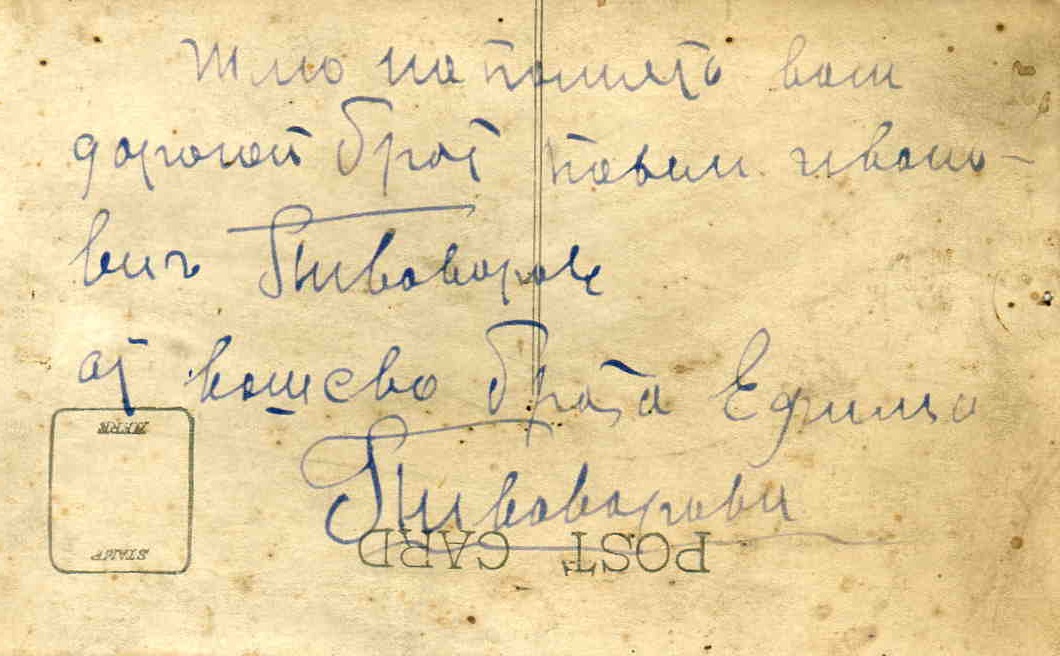 Шлю на помять вам
дорогой брат Павил Ивано-
вич Пивоваров
от вашево брата Ефима
Пивоварова
STAMP HERE
POST CARD